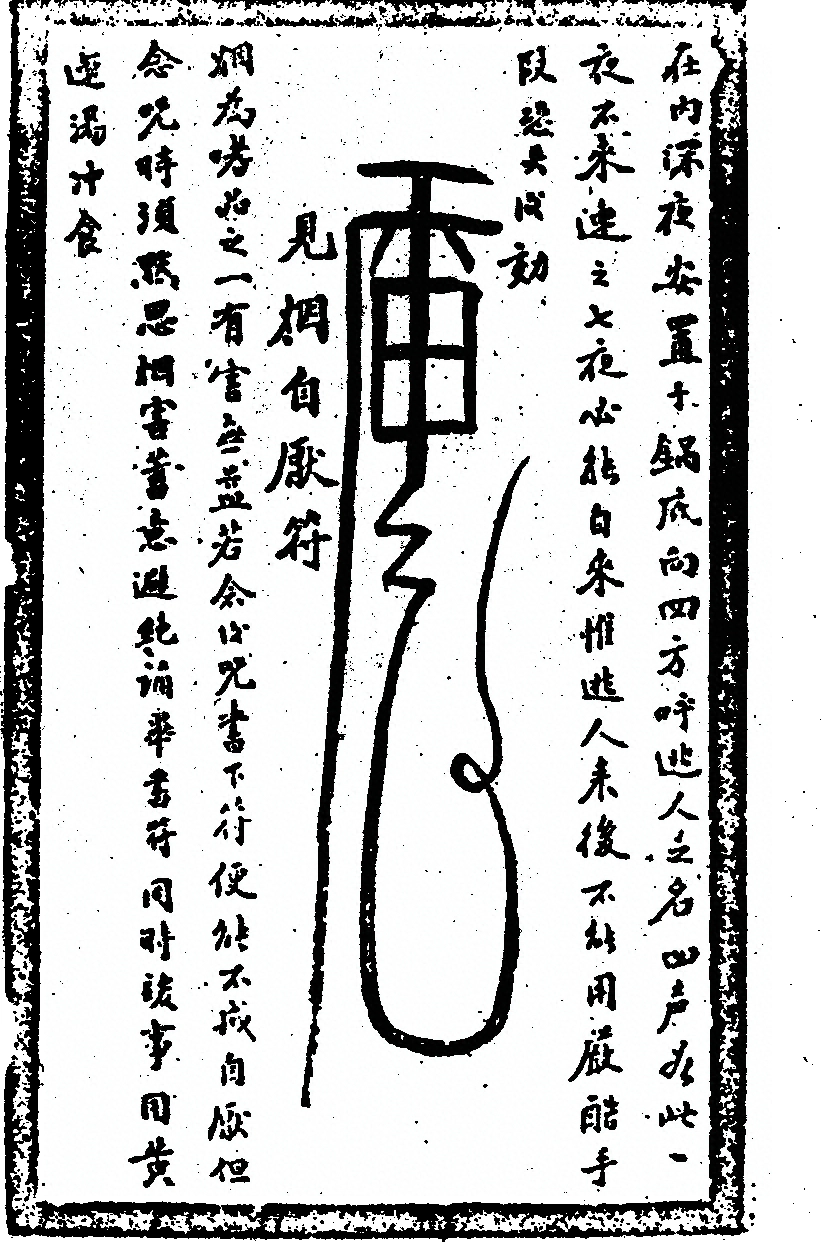 在內深夜安置于鍋底向四方呼逃人之名四声如此一
夜不來連之七夜必能自来惟逃人来後不能用嚴酷手
段恐其没効
見烟自厭符
烟為嗜品之一有害無益若念此咒書下符便能不戒自厭但
念咒時須默思烟害蓄意避絶誦畢書符同時竣事用黄